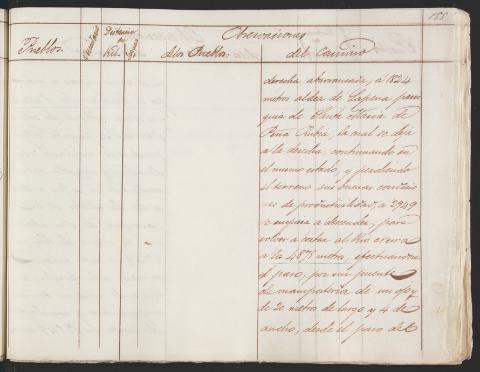 155.
Observaciones
Pueblos.
Vecindario
Distancia en Kils.
Horas
de los Pueblos.
del Camino
derecha abarrancada, a 1824
metros aldea de Lapena parro
quia de Santa Maria de
Peña Rubia, la cual se deja
a la derecha, continuando en
el mismo estado, y perdiendo
el terreno sus buenas condicio
nes de productibilidad, a 2949
se empieza a descender, para
volver a cortar al Rio
a los 4875 metros, efectuandose
el paso, por un puente
de mamposteria de un ojo y
de 20 metros de largo y 4 de
ancho, desde el paso del